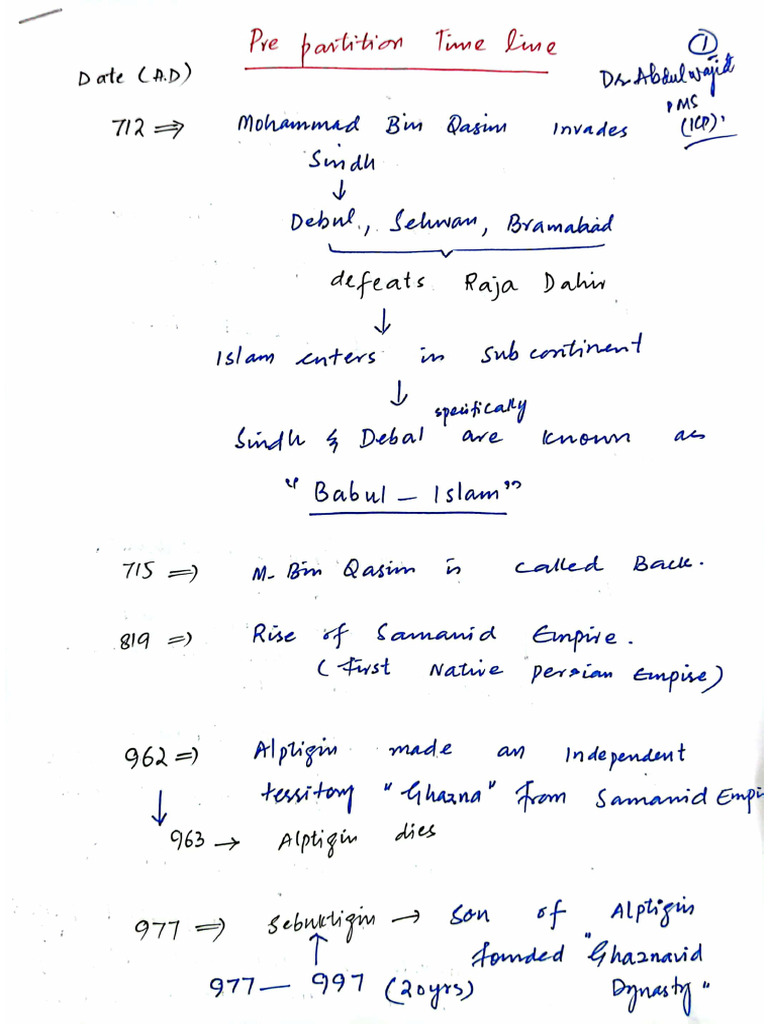 Pre partition Time line
①
Date (A.D)
Dr Abdul wajid
PMS
(ICP).
712 ⇒ Mohammad Bin Qasim invades
Sindh
↓
Debul, Sehwan, Bramabad
defeats Raja Dahir
↓
Islam enters in Sub continent
↓
specifically
Sindh & Debal are known as
"Babul - Islam"
715 ⇒ M. Bin Qasim is called Back.
819 ⇒ Rise of Samanid Empire.
(First Native Persian Empire)
962 ⇒ Alptigin made an independent
territory "Ghazna" From Samanid Empi
↓
963 → Alptigin dies
977 ⇒ Sebuktigin → Son of Alptigin
founded "Ghaznavid
↑
977 - 997 (20yrs) Dynasty"